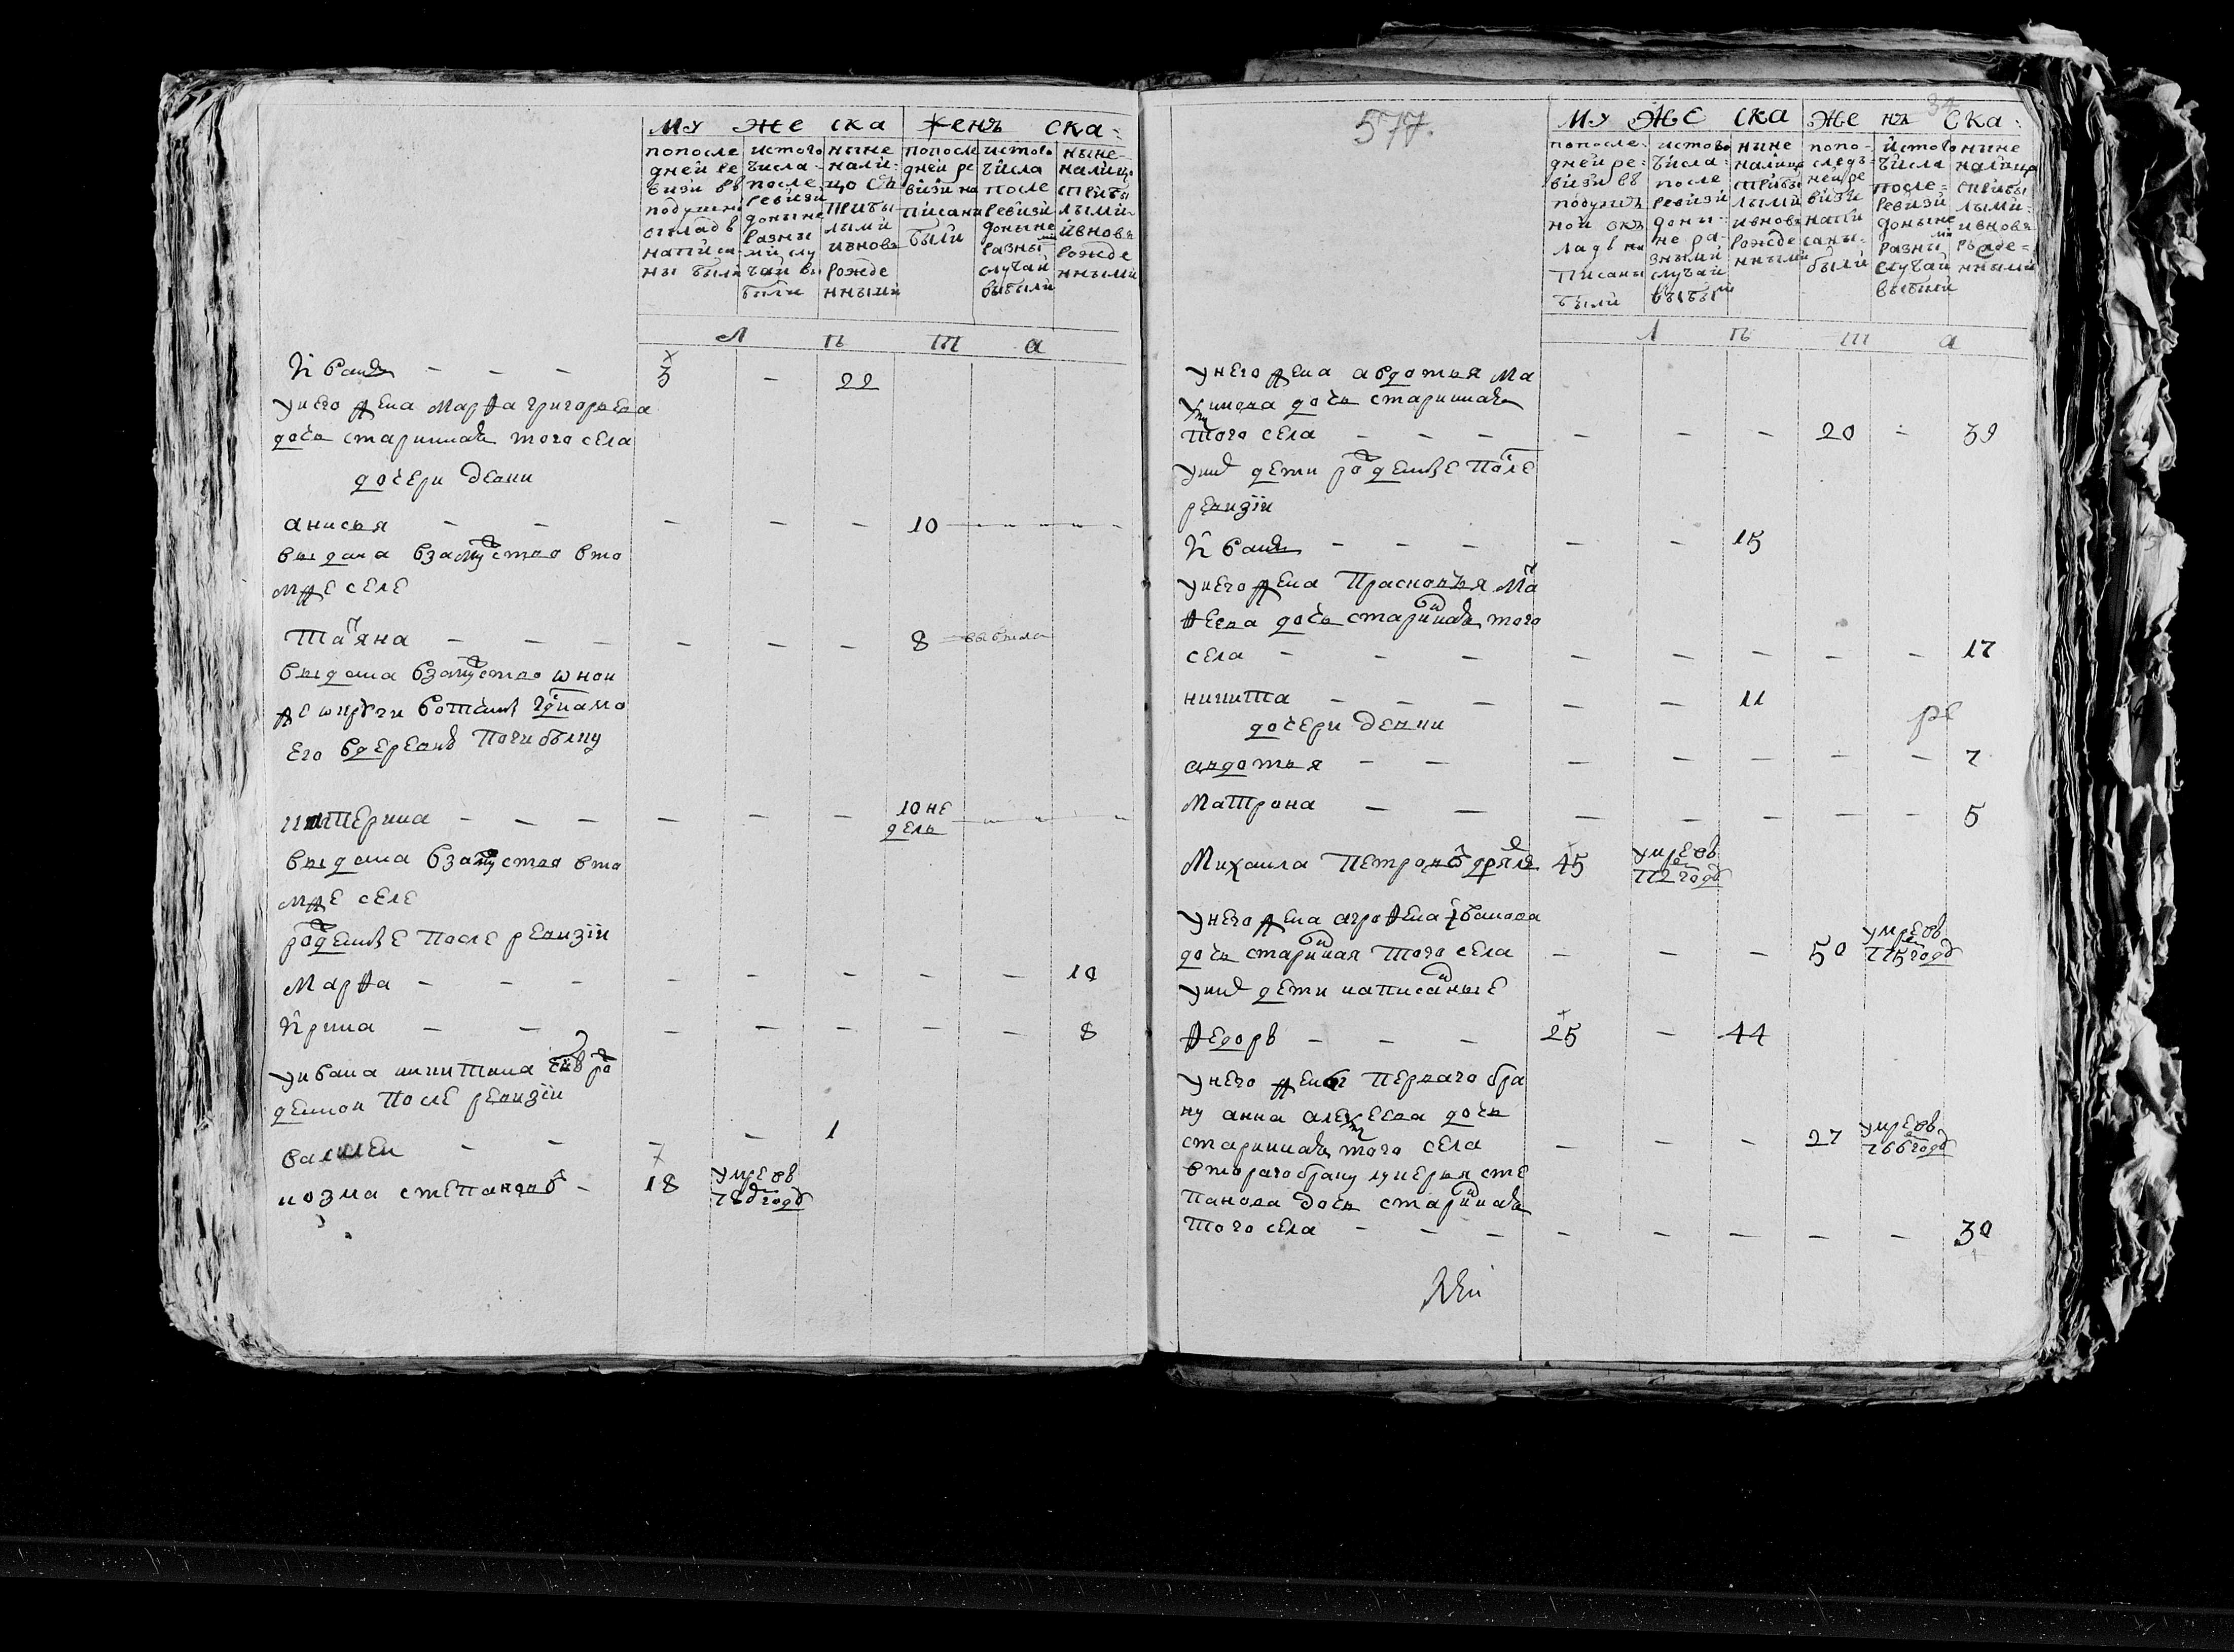 мужеска женъ ска:
попосле дней ре визи въ подушно окладъ написа ны были
истого числа после ревизи доныне разны ми слу чаи вы были
ныне нали: цо съ прибы лыми ивновь рожде нными
попосле дней ре визи на писаны были
истого числа после ревизи доныне разными случаи выбыли
ныне налицо сприбы лыми ивновь рожде нными
л ѣ т а
иванъ - - - 3 - 22
унего жена марфа григорьева
дочь старинная того села
дочери девки
анисья - - - - - 10
выдана взамужство вто
мже селе
татяна - - - - - - 8 выбыла
выдана взамужство
его вдеревню
катерина - - - - - - 10 не дель
выдана взамужство вто
мже селе
рожденные после ревизіи
марфа - - - - - - - - 10
ирина - - - - - - - 8
уивана никитина сынъ ро
жденной после ревизіи
василеи - - - - 1
козма степановъ - 18 умре въ году
577.
муже ска женъ ска:
попосле: дней ре: визи въ подушъ ной окъ ладъ на писаны были
истово числа: после ревизи доны: не ра: зными случаи выбыли
ныне налицо сприбы лыми ивновь рожде нными
попо- следъ ней ре визи напи саны: были
истого числа после: ревизи доныне разными случаи выбыли
ныне налицо сприбы лыми: ивновь рожде= нными
л ѣ т а
унего жена авдотья ма
кимова дочь старинная
того села - - - - - - 20 - 39
уних дети рожденные после
ревизіи
иванъ - - - - - 15
унего жена прасковья мат
феева дочь старинная того
села - - - - - - - - 17
никита - - - - - 11
дочери девки
авдотья - - - - - - - 7
матрона - - - - - - - - 5
михаила петровъ 45 умре въ 772 годе
унего жена агрофена иванова
дочь старинная того села - - - 50 умре въ 775 годе
уних дети написаные
федоръ - - - 25 - 44
унего жены перваго бра
ку анна алексеева дочь
старинная того села - - - 27 умре въ 766 годе
втораго браку лукерья сте
панова дочь старинная
того села - - - - - - - - 30